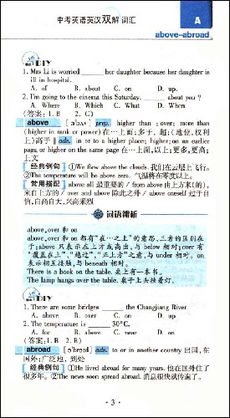 中考英语英汉双解词汇
A
above-abroad
DIY
1. Mrs Li is worried ____ her daughter because her daughter is
ill in hospital.
A. of B. about C. on D. up.
2. I'm going to the cinema this Saturday. ____ about you?
A. Where B. Which C. What D. When
(答案:1. B 2. C)
above prep. higher than; over; more than
(higher in rank or power) 在…上面;多于,超;(地位、权利
上)高于 adv. in or to a higher place; higher; on an earlier
page, or higher on the same page 在…上面,以上;更多,更高;
上文
经典例句 ①We flew above the clouds. 我们在云层上飞行。
②The temperature will be above zero. 气温将在零度以上。
常用搭配 above all 最重要的 / from above 由上方来(的),
来自上方的 / over and above 除此之外 / above oneself 过于自
信,自高自大,兴高采烈
词语辨析
above, over 和 on
above, over 和 on 都有"在…之上"的意思,三者的区别在
于:above 只表示在上方或高出,与 below 相对;over 有
"覆盖在上","越过","正上方"之意,与 under 相对。on
表示相互接触,与 beneath 相对。
There is a book on the table. 桌上有一本书。
The lamp hangs over the table. 桌子上方挂着灯。
DIY
1. There are some bridges ____ the Changjiang River.
A. above B. over C. on D. up
2. The temperature is ____ 30°C.
A. for B. above C. over D. on
(答案:1. B 2. B)
abroad adv. to or in another country 出国,在
国外;广泛地,到处
经典例句 ①He lived abroad for many years. 他在国外住了
很多年。②The news soon spread abroad. 消息很快就传遍了。
·3·